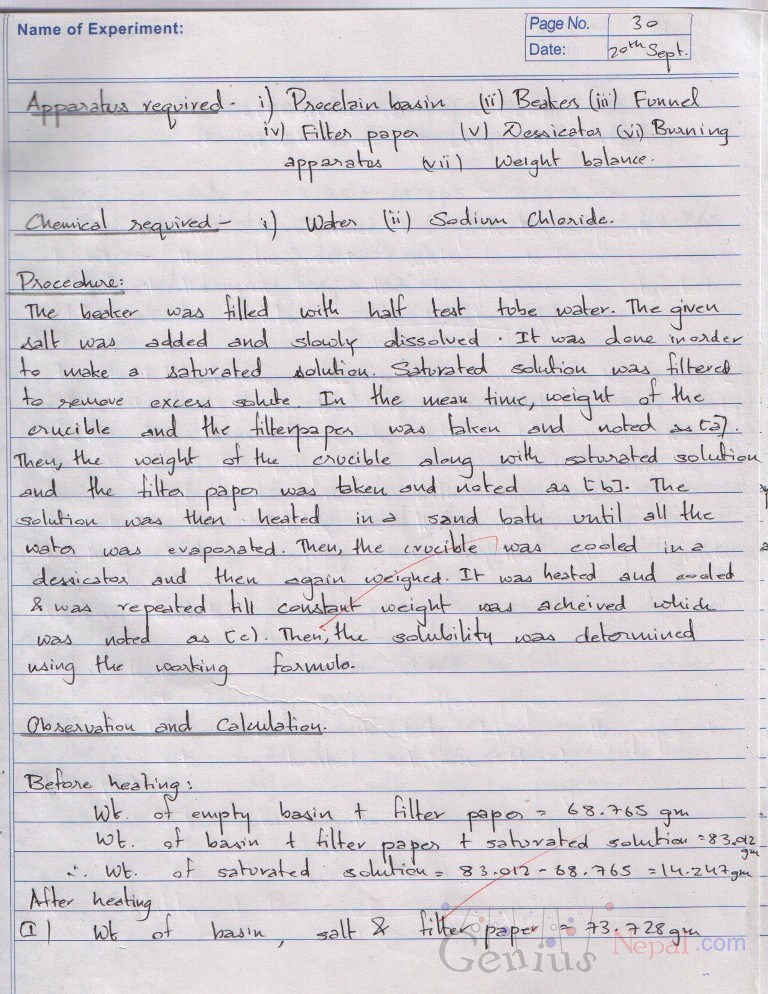 Name of Experiment:
Page No. 30
Date: 20th Sept.
Apparatus required - i) Procelain basin (ii) Beakers (iii) Funnel
iv) Filter paper (v) Dessicator (vi) Burning
apparatus (vii) Weight balance.
Chemical required - i) Water (ii) Sodium Chloride.
Procedure:
The beaker was filled with half test tube water. The given
salt was added and slowly dissolved. It was done inorder
to make a saturated solution. Saturated solution was filtered
to remove excess solute. In the mean time, weight of the
crucible and the filterpaper was taken and noted as [a].
Then, the weight of the crucible along with saturated solution
and the filter paper was taken and noted as [b]. The
solution was then heated in a sand bath until all the
water was evaporated. Then, the crucible was cooled in a
dessicator and then again weighed. It was heated and cooled
& was repeated till constant weight was acheived which
was noted as [c]. Then, the solubility was determined
using the working formula.
Observation and Calculation.
Before heating:
Wt. of empty basin + filter paper = 68.765 gm
Wt. of basin + filter paper + saturated solution = 83.012
gm
∴ Wt. of saturated solution = 83.012 - 68.765 = 14.247 gm
After heating
(I) Wt of basin, salt & filter paper = 73.728 gm
Genius Nepal.com